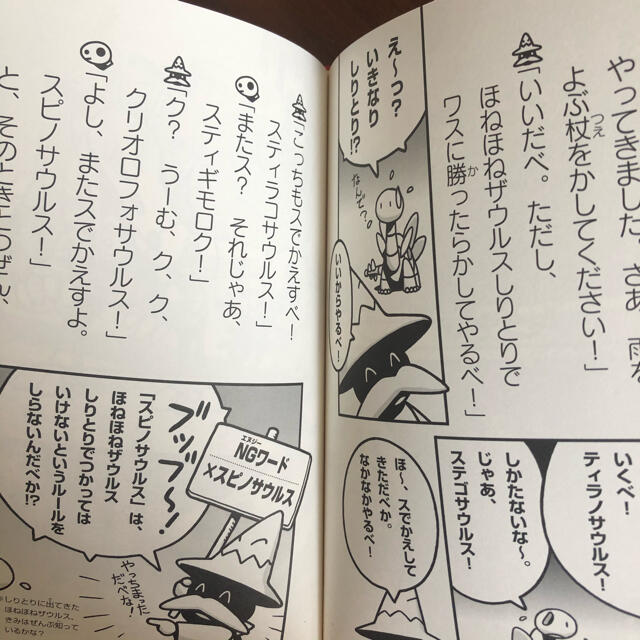 やってきました。さあ、雨を
よぶ杖をかしてください！」
つえ
「いいだべ。ただし、
ほねほねザウルスしりとりで
ワスに勝ったらかしてやるべ！」
か
え〜っ？
いきなり
しりとり!?
なんで？
いいからやるべ！
いくべ！
ティラノサウルス！
しかたないな〜。
じゃあ、
ステゴサウルス！
ほ〜、スでかえして
きただべか。
なかなかやるべ！
「こっちもスでかえすべ！
スティラコサウルス！」
「またス？　それじゃあ、
スティギモロク！」
「ク？　うーむ、ク、ク、
クリオロフォサウルス！」
「よし、またスでかえすよ。
スピノサウルス！」
と、そのときとつぜん、
ブッブ〜！
エヌジー
NGワード
×スピノサウルス
「スピノサウルス」は、
ほねほねザウルス
しりとりでつかっては
いけないというルールを
しらないんだべか!?
やっちまった
だべな！
しりとりに出てきた
ほねほねザウルス、
きみはぜんぶ知って
いるかな？